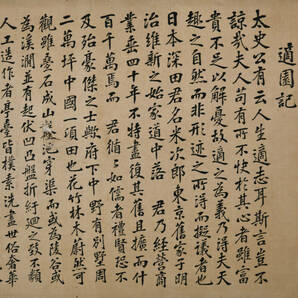 適園記
太史公有云人生適志耳斯言豈不
諒哉夫人苟有所不快於其心者雖富
貴不足以解憂適之為義乃得夫天
趣之自然而非形迹之所得而擬議者也
日本深田君名米次郎東京舊家子明
治維新之始家道中落 君乃經營商
業垂四十年不特盡復其舊且擴而什
倍之焉而 君循〻如儒者禮賢恐不
及殆豪傑之士歟府下中野有別墅周
二萬坪中國一頃田也花竹林木蔚然可
觀雖壘石成山 洗穿渠而或為陵谷或
為溪澗並有起伏凹凸盤折紆迴之致不類
人工造作者亭臺皆樸素洗盡世俗奢華